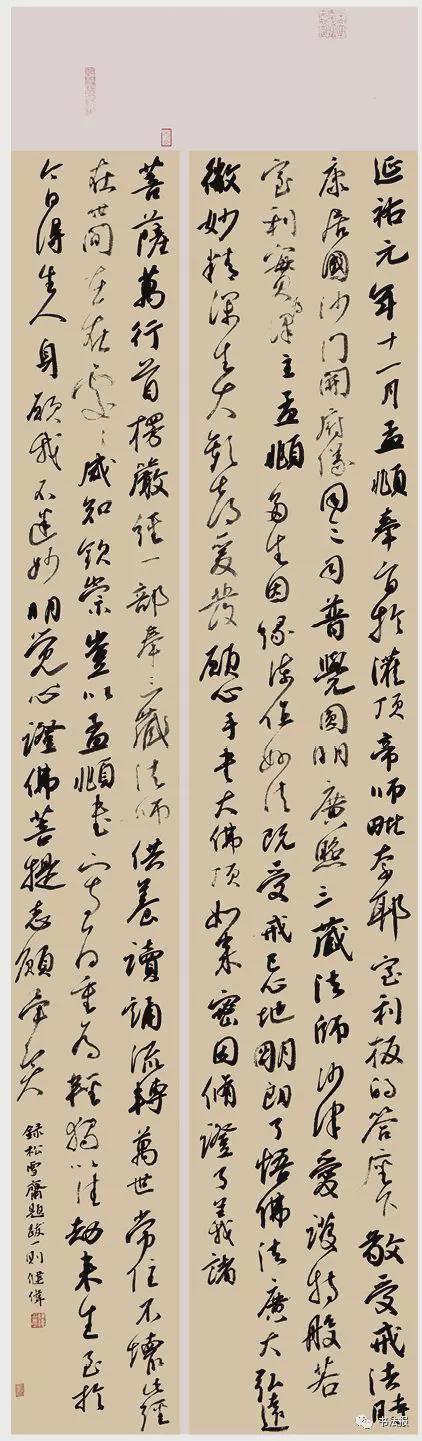 延祐元年十一月孟頫奉旨於灌頂帝師毗奈耶室利板的答座下敬受戒法時
康居國沙門開府儀同三司普覺圓明廣照三藏法師沙律愛護持般若
室利實為譯主孟頫多生因緣流傳妙法既受戒已心地開朗了悟佛法廣大弘遠
微妙精深生大歡喜爰發願心手書大佛頂如來密因脩證了義諸
菩薩萬行首楞嚴經一部奉三藏法師供養讀誦流轉萬世常住不壞此經
在世間在在處處咸知欽崇豈以孟頫書寫之功重為輕獨以往劫來生至於
今日得生人身願我不迷妙明覺心證佛菩提志願畢矣
録松雪齋題跋一則健偉
书法报